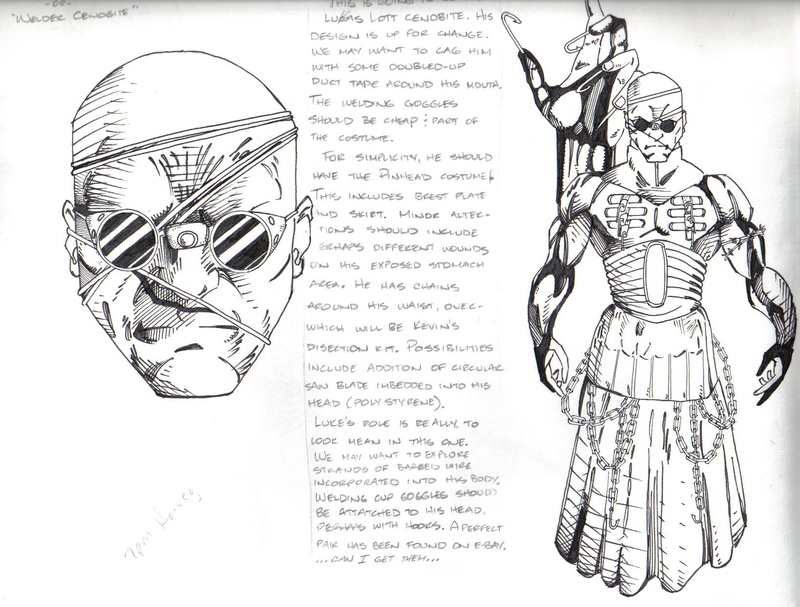 -OR-
"WELDER CENOBITE"
THIS IS GOING TO
LUKAS LOTT CENOBITE. HIS
DESIGN IS UP FOR CHANGE.
WE MAY WANT TO GAG HIM
WITH SOME DOUBLED-UP
DUCT TAPE AROUND HIS MOUTH.
THE WELDING GOGGLES
SHOULD BE CHEAP & PART OF
THE COSTUME.
FOR SIMPLICITY, HE SHOULD
HAVE THE PINHEAD COSTUME.
THIS INCLUDES BREST PLATE
AND SKIRT. MINOR ALTER-
TIONS SHOULD INCLUDE
ERHAPS DIFFERENT WOUNDS
ON HIS EXPOSED STOMACH
AREA. HE HAS CHAINS
AROUND HIS WAIST, OVER-
WHICH WILL BE KEVIN'S
DISECTION KIT. POSSIBILITIES
INCLUDE ADDITION OF CIRCULAR
SAW BLADE IMBEDDED INTO HIS
HEAD (POLYSTYRENE).
LUKE'S ROLE IS REALLY TO
LOOK MEAN IN THIS ONE.
WE MAY WANT TO EXPLORE
STRANDS OF BARBED WIRE
INCORPORATED INTO HIS BODY.
WELDING CUP GOGGLES SHOULD
BE ATTATCHED TO HIS HEAD,
PERHAPS WITH HOOKS. A PERFECT
PAIR HAS BEEN FOUND ON E-BAY.
...CAN I GET THEM...